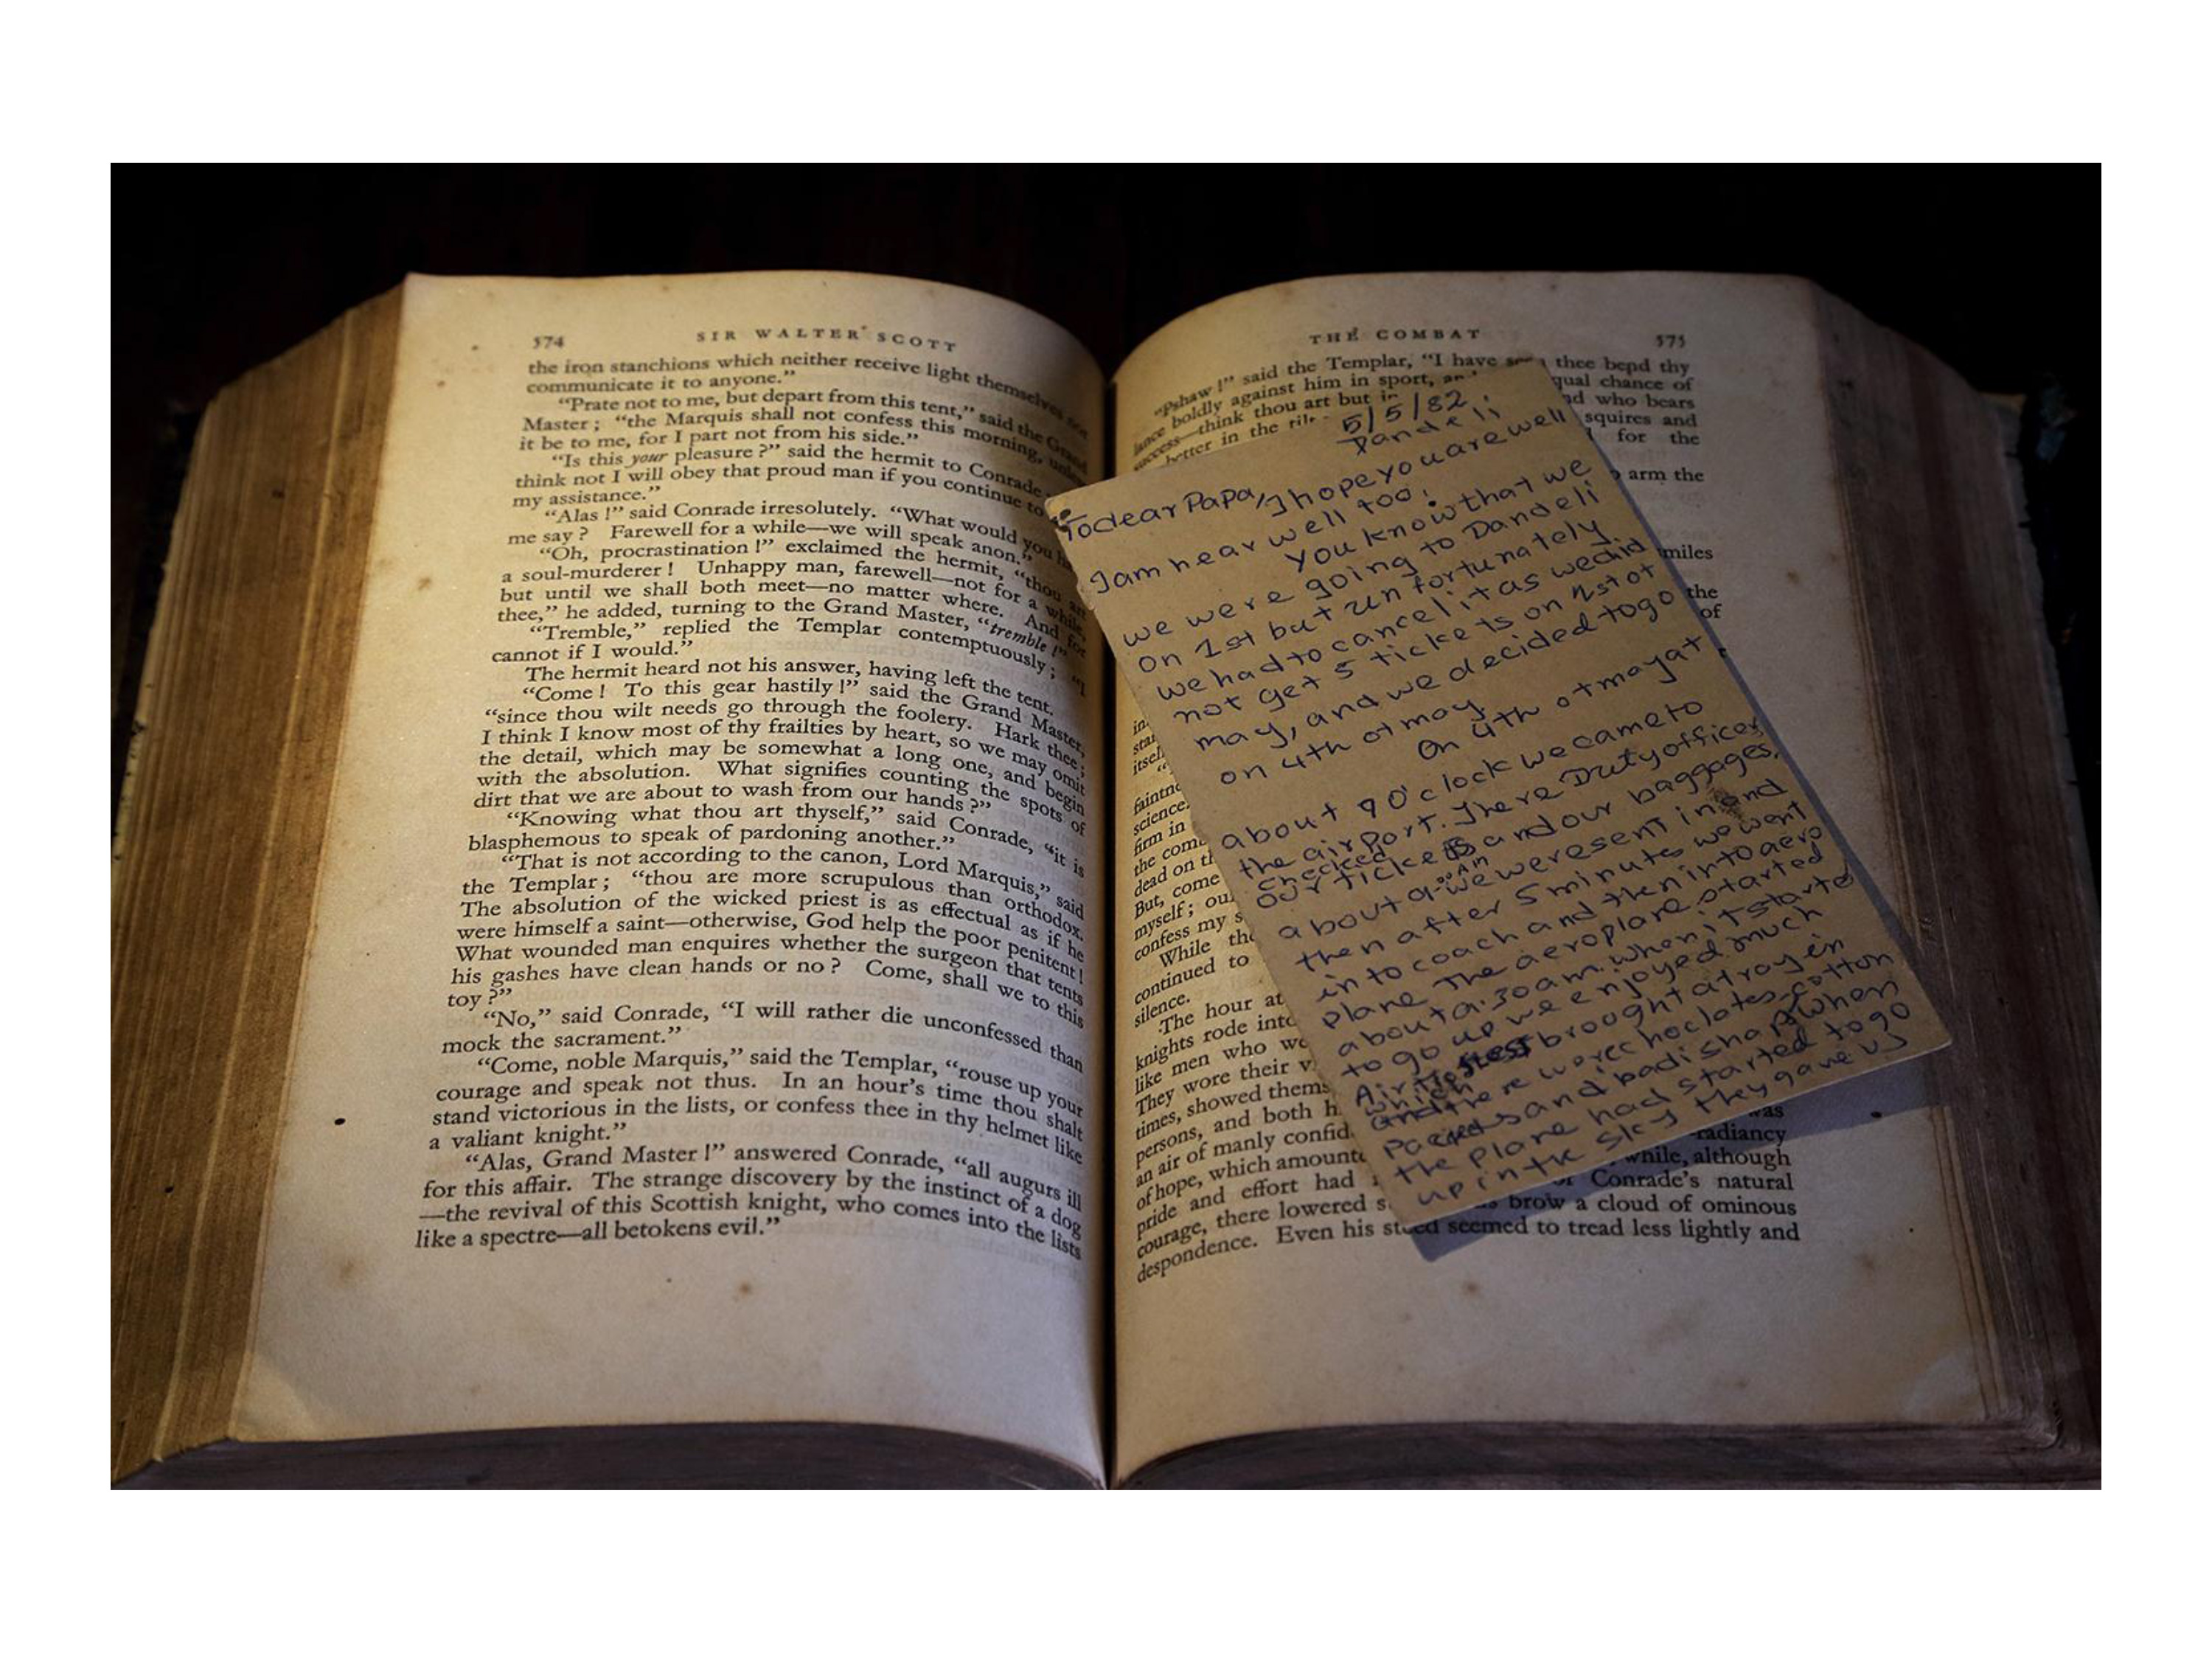 574
SIR WALTER SCOTT
the iron stanchions which neither receive light themselves, nor
communicate it to anyone.”
“Prate not to me, but depart from this tent,” said the Grand
Master; “the Marquis shall not confess this morning, unless
it be to me, for I part not from his side.”
“Is this your pleasure?” said the hermit to Conrade
think not I will obey that proud man if you continue to
my assistance.”
“Alas!” said Conrade irresolutely. “What would you
me say? Farewell for a while—we will speak anon.”
“Oh, procrastination!” exclaimed the hermit, “thou art
a soul-murderer! Unhappy man, farewell—not for a while,
but until we shall both meet—no matter where. And for
thee,” he added, turning to the Grand Master, “tremble!”
“Tremble,” replied the Templar contemptuously; “I
cannot if I would.”
The hermit heard not his answer, having left the tent.
“Come! To this gear hastily!” said the Grand Master,
“since thou wilt needs go through the foolery. Hark thee;
I think I know most of thy frailties by heart, so we may omit
the detail, which may be somewhat a long one, and begin
with the absolution. What signifies counting the spots of
dirt that we are about to wash from our hands?”
“Knowing what thou art thyself,” said Conrade, “it is
blasphemous to speak of pardoning another.”
“That is not according to the canon, Lord Marquis,” said
the Templar; “thou are more scrupulous than orthodox.
The absolution of the wicked priest is as effectual as if he
were himself a saint—otherwise, God help the poor penitent!
What wounded man enquires whether the surgeon that tents
his gashes have clean hands or no? Come, shall we to this
toy?”
“No,” said Conrade, “I will rather die unconfessed than
mock the sacrament.”
“Come, noble Marquis,” said the Templar, “rouse up your
courage and speak not thus. In an hour’s time thou shalt
stand victorious in the lists, or confess thee in thy helmet like
a valiant knight.”
“Alas, Grand Master!” answered Conrade, “all augurs ill
for this affair. The strange discovery by the instinct of a dog
—the revival of this Scottish knight, who comes into the lists
like a spectre—all betokens evil.”
THE COMBAT
575
“Pshaw!” said the Templar, “I have seen thee bend thy
lance boldly against him in sport, qual chance of
success—think thou art but who bears
better in the squires and
for the
arm the
miles
the
of
5/5/82
Dandeli
To dear Papa, I hope you are well
I am hear well too.
You know that we
we were going to Dandeli
on 1st but unfortunately
we had to cancel it as we did
not get 5 tickets on 1st of
may, and we decided to go
on 4th of may.
On 4th of may at
about 9 O'clock we came to
the airport. There Duty officer
checked
our tickets and our baggages.
about we were sent in and
then after 5 minutes we went
into coach and then into aero
plane The aeroplane started
about 9.30 am. when it started
to go up we enjoyed much
Air Hostess brought a tray in
which
there were chocolates cotton
packets and badishap When
the plane had started to go
up in the sky they gave us
itself
science
firm in
the
dead on
But, come
myself;
confess my
While the
continued to
silence.
The hour
knights rode into
like men who
They wore their
times, showed
persons, and both
an air of manly
of hope, which
pride and effort had
courage, there lowered brow a cloud of ominous
despondence. Even his steed seemed to tread less lightly and
was
radiancy
while, although
Conrade’s natural